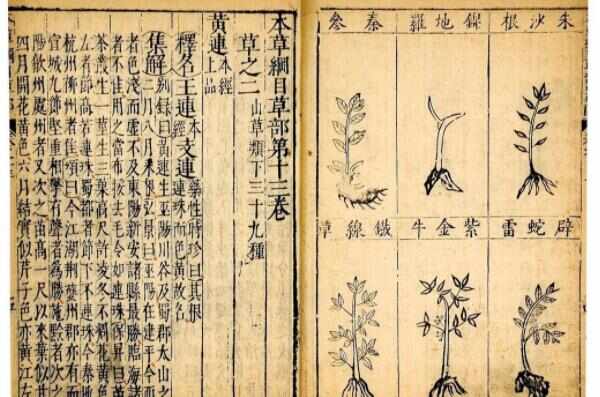 朱沙根
錦地羅
參
辟虺雷
紫金牛
鐵線草
本草綱目草部第十三卷
草之二 山草類下三十九種
黃連 本經上品
釋名 王連 本經 支連 藥性 時珍曰其根連珠而色黃故名
集解 別錄曰黃連生巫陽川谷及蜀郡太山之
二月八月采 弘景曰巫陽在建平今西
者色淺而虛不及東陽新安諸縣最勝臨海諸
者不佳用之當布裹挼去毛令如連珠保昇曰苗
茶叢生一莖生三葉高尺許凌冬不凋花黃色
左者節高若連珠蜀都者節下不連珠今秦地
杭州柳州者佳頌曰今江湖荊夔州郡亦有而
宣城九節堅重相擊有聲者為勝施黔者次之
陽歙州處州者又次之苗高一尺以來葉似甘
四月開花黃色六月結實似芹子色亦黃江左